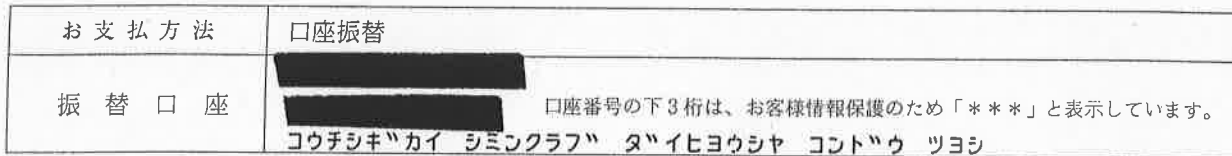 お支払方法 口座振替
振替口座 口座番号の下3桁は、お客様情報保護のため「＊＊＊」と表示しています。
コウチシギカイ シミンクラブ ダイヒヨウシヤ コンドウ ツヨシ